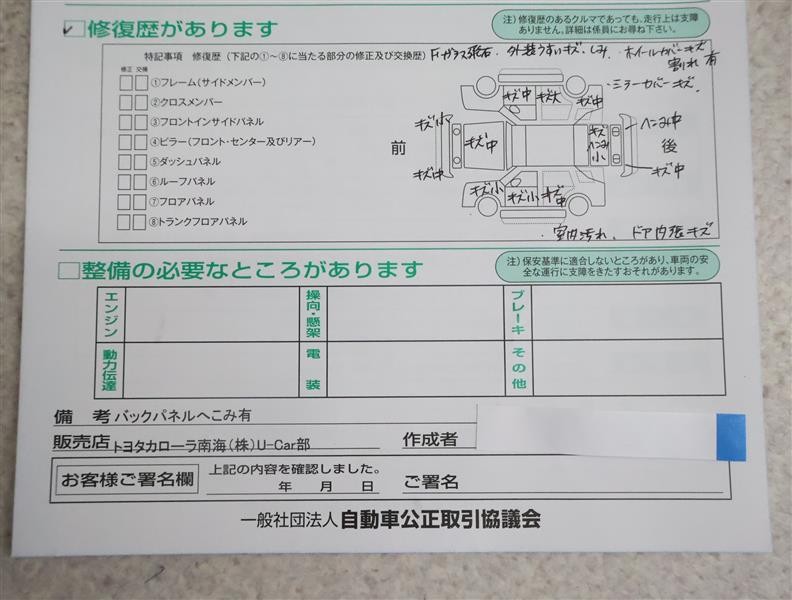 ✓□修復歴があります
注）修復歴のあるクルマであっても、走行上は支障
ありません。詳細は係員にお尋ね下さい。
特記事項 修復歴（下記の①～⑧に当たる部分の修正及び交換歴）Fガラス飛石・外装うすいキズ・しみ・ホイールカバーキズ
割れ有
・ミラーカバーキズ
修正 交換
□□①フレーム（サイドメンバー）
□□②クロスメンバー
□□③フロントインサイドパネル
□□④ピラー（フロント・センター及びリアー）
□□⑤ダッシュパネル
□□⑥ルーフパネル
□□⑦フロアパネル
□□⑧トランクフロアパネル
前
後
キズ中
キズ大
キズ中
キズ小
キズ中
キズ中
キズ
へこみ
小
へこみ中
キズ中
キズ小
キズ小
キズ中
・室内汚れ、ドア内張キズ
□整備の必要なところがあります
注）保安基準に適合しないところがあり、車両の安
全な運行に支障をきたすおそれがあります。
エンジン
操向・懸架
ブレーキ
動力伝達
電装
その他
備考 バックパネルへこみ有
販売店 トヨタカローラ南海（株）U-Car部 作成者
お客様ご署名欄
上記の内容を確認しました。
年 月 日 ご署名
一般社団法人 自動車公正取引協議会